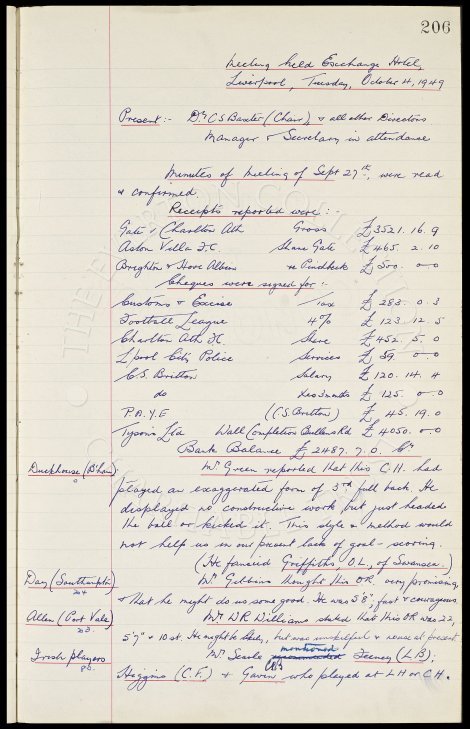 206
Meeting held Exchange Hotel,
Liverpool, Tuesday, October 4, 1949
Present:- Dr. C S Baxter (Chair), & all other Directors
Manager & Secretary in attendance
Minutes of Meeting of Sept 27th, were read
& confirmed
Receipts reported were:-
Gate v Charlton Ath Gross £3521. 16. 9
Aston Villa F.C. Share Gate £465. 2. 10
Brighton & Hove Albion re Pinchbeck £500. 0-0
Cheques were signed for:-
Customs & Excise Tax £283. 0. 3
Football League 4% £123. 12. 5
Charlton Ath F.C. Share £452. 5. 0
L'pool City Police Services £59. 0-0
C.S. Britton Salary £120. 14. 4
do £125. 0-0
P.A.Y.E (C.S. Britton) £45. 19. 0
Tysons Ltd Wall Completion Bullens Rd £4050. 0-0
Bank Balance £2487. 7. 0. Cr
Duckhouse (B'ham) Mr Green reported that this C.H. had
played an exaggerated form of 3rd full back. He
displayed no constructive work but just headed
the ball or kicked it. This style or method would
not help us in our present lack of goal-scoring.
(He fancied Griffiths, O.L., of Swansea.)
Day (Southampton) Mr Gibbins thought this OR, very promising,
24
& that he might do us some good. He was 5'8", fast & courageous
Allen (Port Vale) Mr W R Williams stated that this OR was 22,
23
5'7" & 10 st. He might but was & at present.
mentioned
Irish players Mr Searle recommended Feeney (LB);
Higgins (C.F.) & Gavin who played at LH or CH.